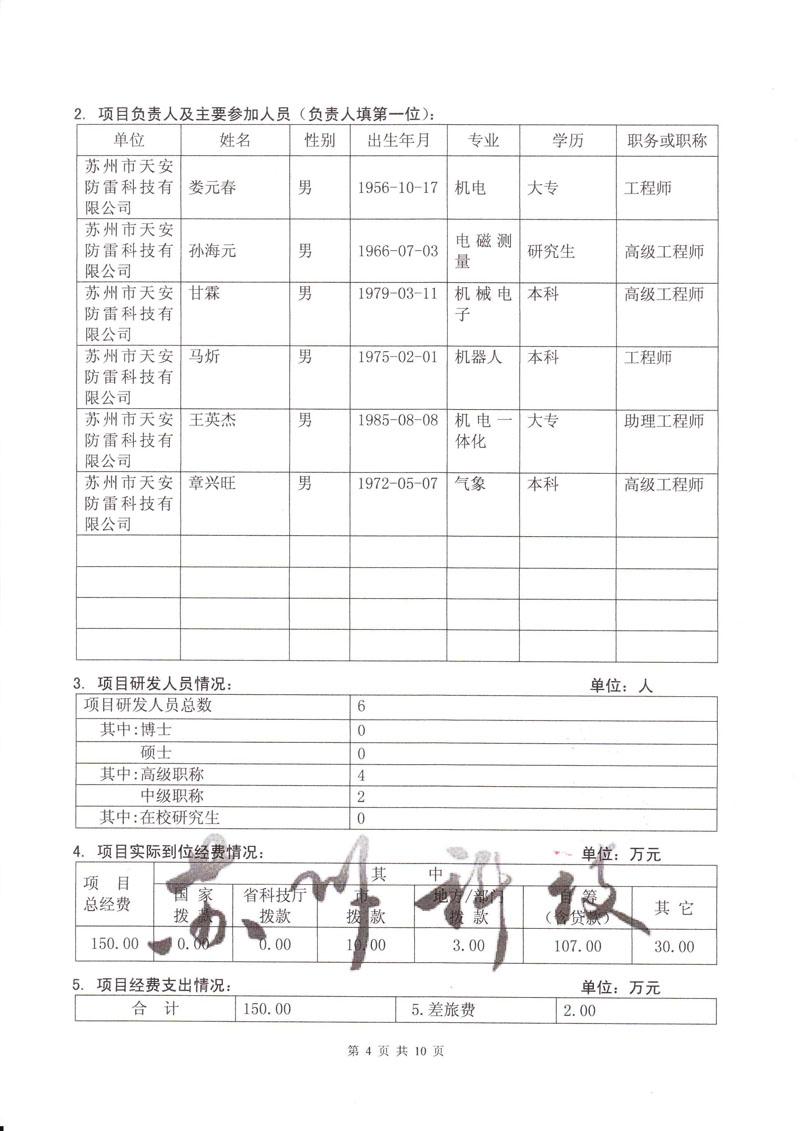 2. 项目负责人及主要参加人员（负责人填第一位）：
单位 姓名 性别 出生年月 专业 学历 职务或职称
苏州市天安
防雷科技有 娄元春 男 1956-10-17 机电 大专 工程师
限公司
苏州市天安
防雷科技有 孙海元 男 1966-07-03 电磁测量 研究生 高级工程师
限公司
苏州市天安 甘霖 男 1979-03-11 机械电子 本科 高级工程师
防雷科技有
限公司
苏州市天安 马炘 男 1975-02-01 机器人 本科 工程师
防雷科技有
限公司
苏州市天安 王英杰 男 1985-08-08 机电一体化 大专 助理工程师
防雷科技有
限公司
苏州市天安 章兴旺 男 1972-05-07 气象 本科 高级工程师
防雷科技有
限公司
3. 项目研发人员情况： 单位：人
项目研发人员总数 6
其中:博士 0
硕士 0
其中:高级职称 4
中级职称 2
其中:在校研究生 0
4. 项目实际到位经费情况： 单位：万元
项 目 其 中
总经费 国 家 省科技厅 市 地方/部门 自 筹 其 它
拨 款 拨款 拨 款 拨 款 （含贷款）
150.00 0.00 0.00 10.00 3.00 107.00 30.00
苏州科技
5. 项目经费支出情况： 单位：万元
合 计 150.00 5.差旅费 2.00
第 4 页 共 10 页